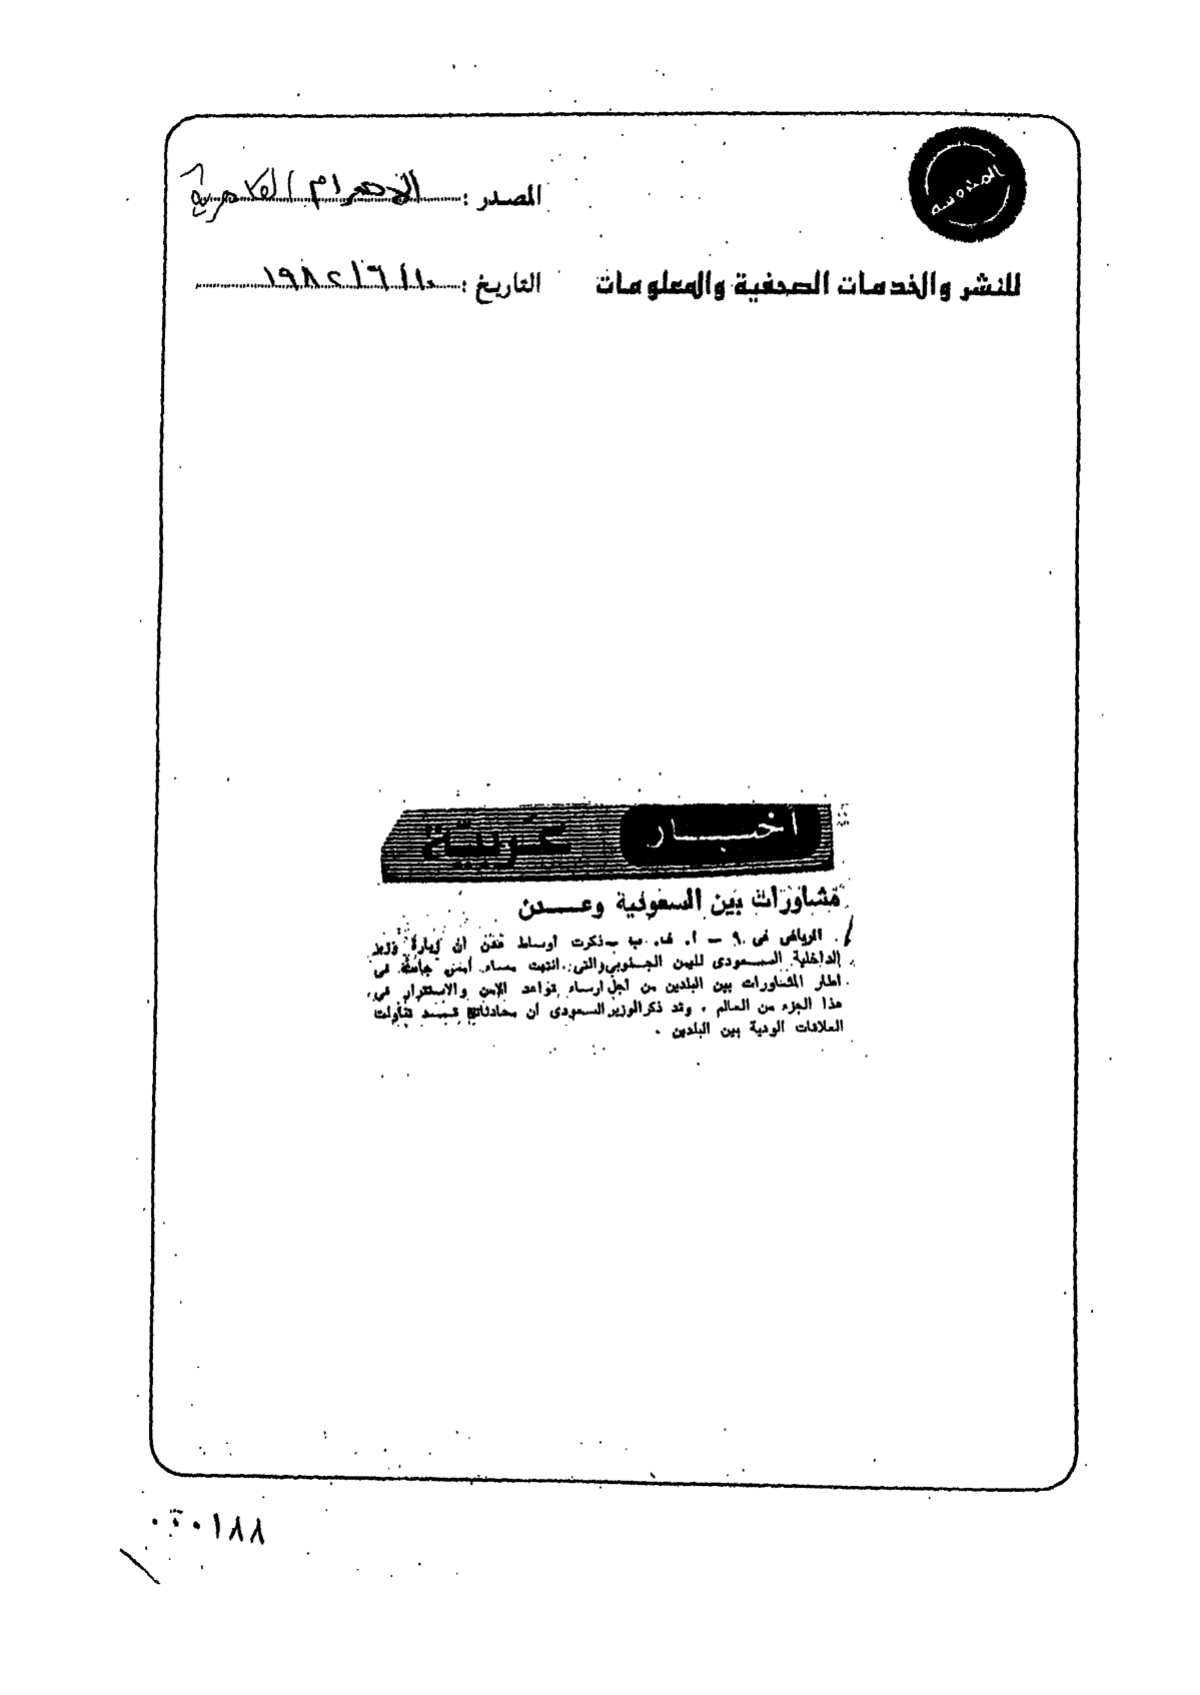 المصدر : الاهرام القاهرية
للنشر والخدمات الصحفية والمعلومات
التاريخ : ١٩٨٢/٦/١٠
أخبار عربية
مشاورات بين السعودية وعدن
الرياض فى ٩ - أ. ف. ب - ذكرت أوساط عدن أن زيارة وزير
الداخلية السعودى لليمن الجنوبى والتى انتهت مساء أمس جاءت فى
اطار المشاورات بين البلدين من أجل ارساء قواعد الامن والاستقرار فى
هذا الجزء من العالم . وقد ذكر الوزير السعودى ان محادثاته قد تناولت
العلاقات الودية بين البلدين .
١٨٨